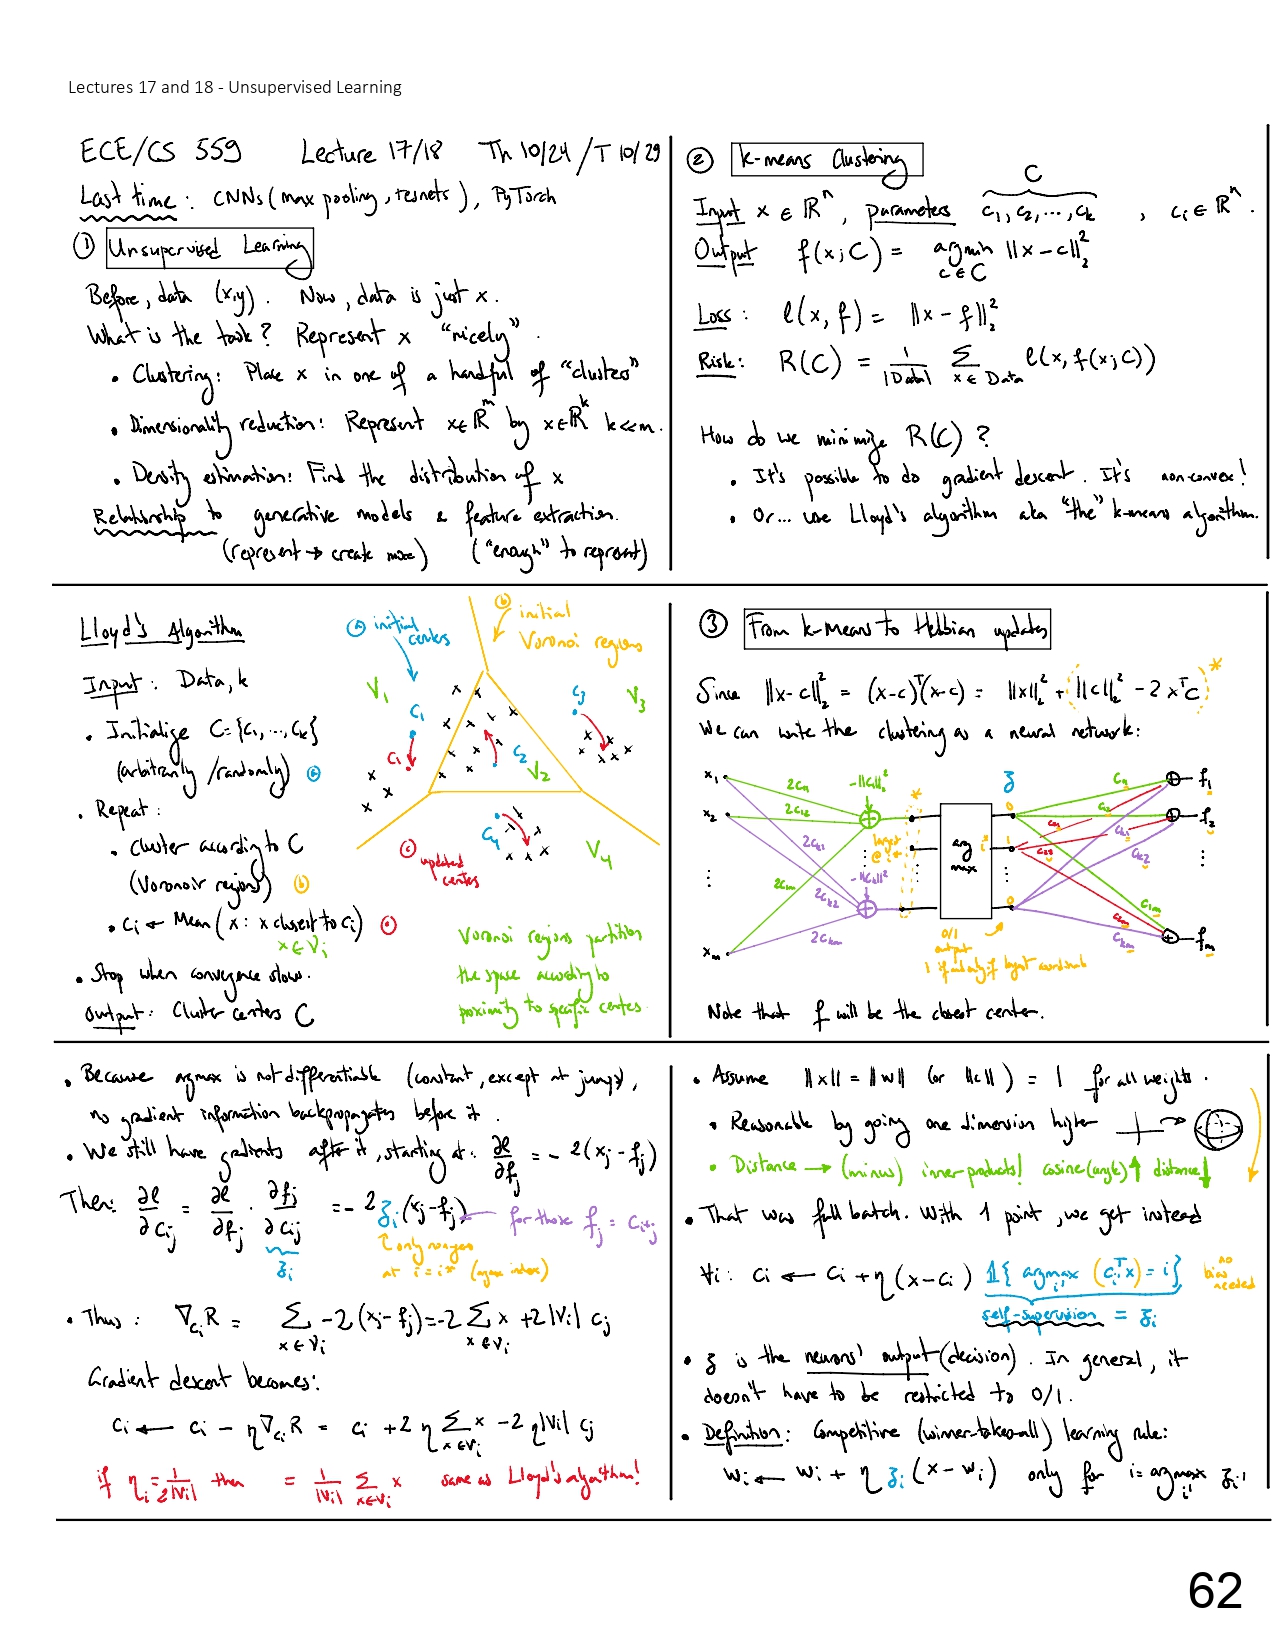 Lectures 17 and 18 - Unsupervised Learning
ECE/CS 559 Lecture 17/18 Th 10/24 / T 10/29
Last time: CNNs (max pooling, resnets), PyTorch
① Unsupervised Learning
Before, data (x,y). Now, data is just x.
What is the task? Represent x "nicely".
• Clustering: Place x in one of a handful of "clusters"
• Dimensionality reduction: Represent x∈ℝᵐ by x∈ℝᵏ k<<m.
• Density estimation: Find the distribution of x
Relationship to generative models & feature extraction.
(represent → create more) ("enough" to represent)
② k-means Clustering
C
Input x ∈ ℝⁿ, parameters c₁, c₂, ..., cₖ , cᵢ ∈ ℝⁿ.
Output f(x;C) = argmin ||x - c||₂²
c∈C
Loss: ℓ(x, f) = ||x - f||₂²
Risk: R(C) = 1/|Data| Σ ℓ(x, f(x;C))
x ∈ Data
How do we minimize R(C)?
• It's possible to do gradient descent. It's non-convex!
• Or... use Lloyd's algorithm aka "the" k-means algorithm.
Lloyd's Algorithm
Input: Data, k
• Initialize C={c₁, ..., cₖ}
(arbitrarily / randomly) ⓐ
• Repeat:
• Cluster according to C
(Voronoir regions) ⓑ
• cᵢ ← Mean(x: x closest to cᵢ) ⓒ
x∈Vᵢ
• Stop when convergence slows.
Output: Cluster centers C
ⓐ initial centers
ⓑ initial Voronoi regions
V₁
C₁
C₁
C₂
V₂
C₃
V₃
C₄
V₄
ⓒ updated centers
Voronoi regions partition
the space according to
proximity to specific centers.
③ From k-means to Hebbian updates
Since ||x-c||₂² = (x-c)ᵀ(x-c) = ||x||₂² + ||c||₂² - 2xᵀc *
We can write the clustering as a neural network:
x₁ 2c₁₁ -||c₁||² * z c₁₁ f₁
x₂ 2c₁₂ 0 f₂
2cₖ₁ largest @ i* arg max i* 1
2c₁ₘ -||cₖ||² 2cₖ₂ 0 c₁ₘ
xₘ 2cₖₘ cₖₘ fₘ
0/1 output
1 if and only if largest coordinate
Note that f will be the closest center.
• Because argmax is not differentiable (constant, except at jumps),
no gradient information backpropagates before it.
• We still have gradients after it, starting at: ∂ℓ/∂fⱼ = -2(xⱼ-fⱼ)
Then: ∂ℓ/∂cᵢⱼ = ∂ℓ/∂fⱼ · ∂fⱼ/∂cᵢⱼ = -2 zᵢ(xⱼ-fⱼ) ← for those fⱼ = cᵢ*ⱼ
zᵢ
↑ only nonzero
at i=i* (argmax index)
• Thus: ∇cᵢR = Σ -2(xⱼ-fⱼ) = -2 Σ x + 2|Vᵢ| cⱼ
x∈Vᵢ x∈Vᵢ
Gradient descent becomes:
cᵢ ← cᵢ - η∇cᵢR = cᵢ + 2η Σ x - 2η|Vᵢ| cⱼ
x∈Vᵢ
if ηᵢ = 1/2|Vᵢ| then = 1/|Vᵢ| Σ x same as Lloyd's algorithm!
x∈Vᵢ
• Assume ||x|| = ||w|| (or ||c||) = 1 for all weights.
• Reasonable by going one dimension higher →
• Distance → (minus) inner products! cosine(angle)↑ distance↓
• That was full batch. With 1 point, we get instead
∀i: cᵢ ← cᵢ + η(x-cᵢ) 𝟙{argmax (cᵢ'ᵀx) = i} no bias needed
i'
self-supervision = zᵢ
• z is the neurons' output (decision). In general, it
doesn't have to be restricted to 0/1.
• Definition: Competitive (winner-takes-all) learning rule:
wᵢ ← wᵢ + η zᵢ (x-wᵢ) only for i = argmax zᵢ'
i'
62